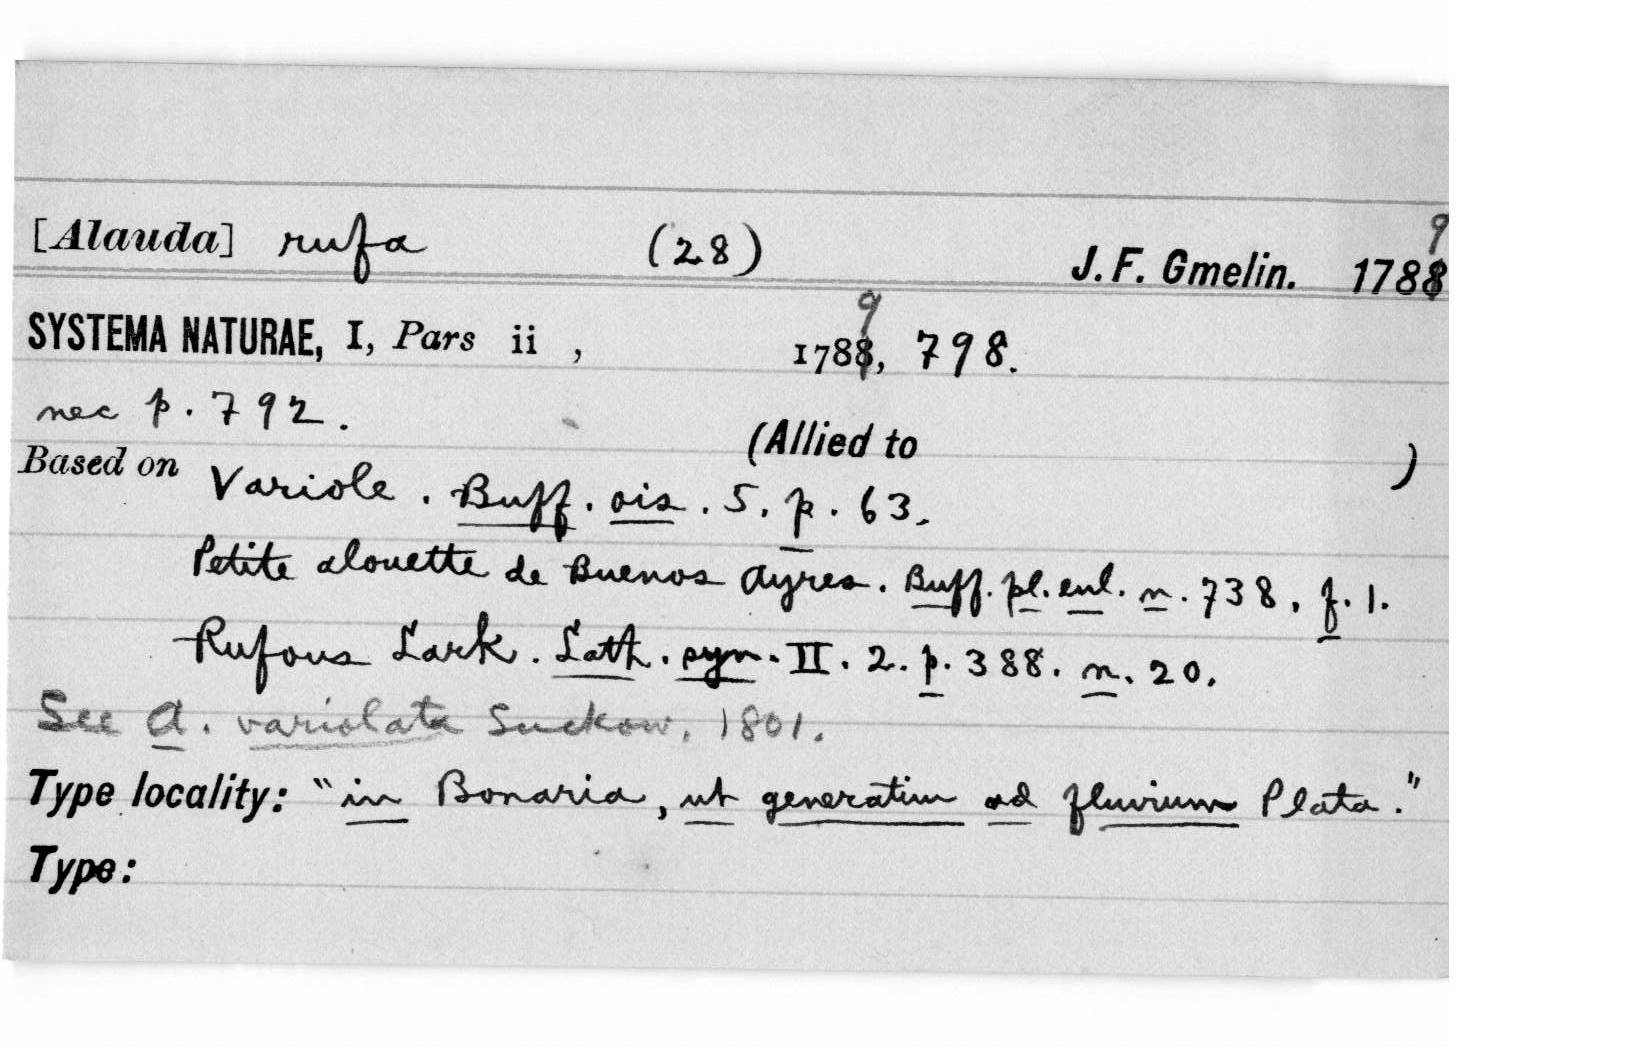 [Alauda] rufa (28) J. F. Gmelin. 1789
SYSTEMA NATURAE, I, Pars ii , 1789, 798.
nec p. 792.
(Allied to )
Based on Variole. Buff. ois. 5. p. 63.
Petite alouette de Buenos Ayres. Buff. pl. enl. n. 738. f. 1.
Rufous Lark. Lath. syn. II. 2. p. 388. n. 20.
See A. variolata Suckow, 1801.
Type locality: "in Bonaria, ut generatim ad fluvium Plata."
Type: